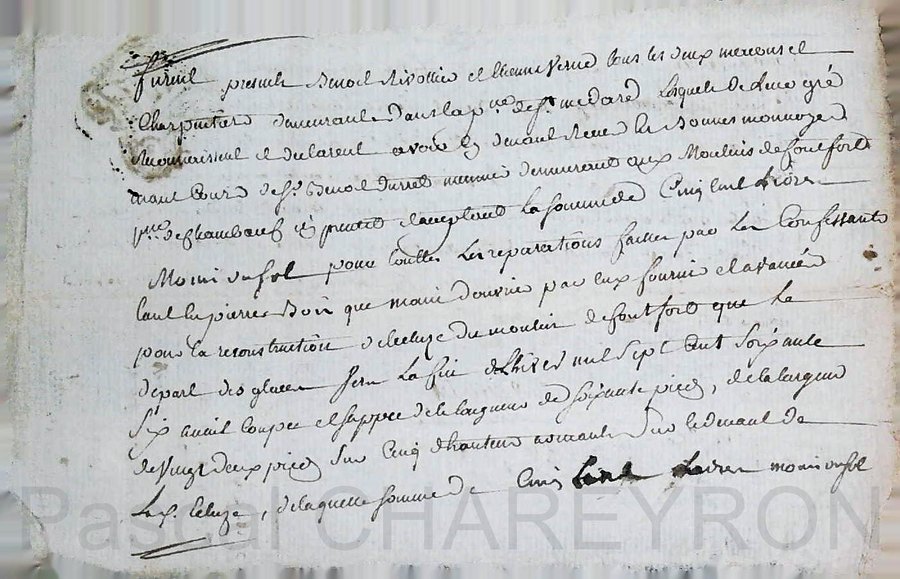 furent presents Benoit Rivollier et Etienne Verne tous les deux
Charpentiers demeurants dans la psse. de st. medard lesquels de leur gré
Reconnaissent et declarent avoir Reçu les Bonnes monnoyes
ayant Cours de sr. Benoit meunier demeurant aux Moulins de fontfort
psse. de Chambœuf icy present et acceptant la somme de Cinq Cent Livres
Moins un sol pour touttes les reparations faittes par les Confessants
tant en pierres Bois que main d'œuvre par eux fournie et avancée
pour la reconstruction d'ecluze du moulin de fontfort que le
depart des glaces sera la fin de L'hiver mil sept Cent Soixante
Six avait coupée et sappée de la longueur de soixante pieds, de la largeur
de vingt deux pieds sur Cinq d'hauteur du devant de
La ecluze, de laquelle somme de Cinq Cent Livres moins un sol
Pascal CHAREYRON